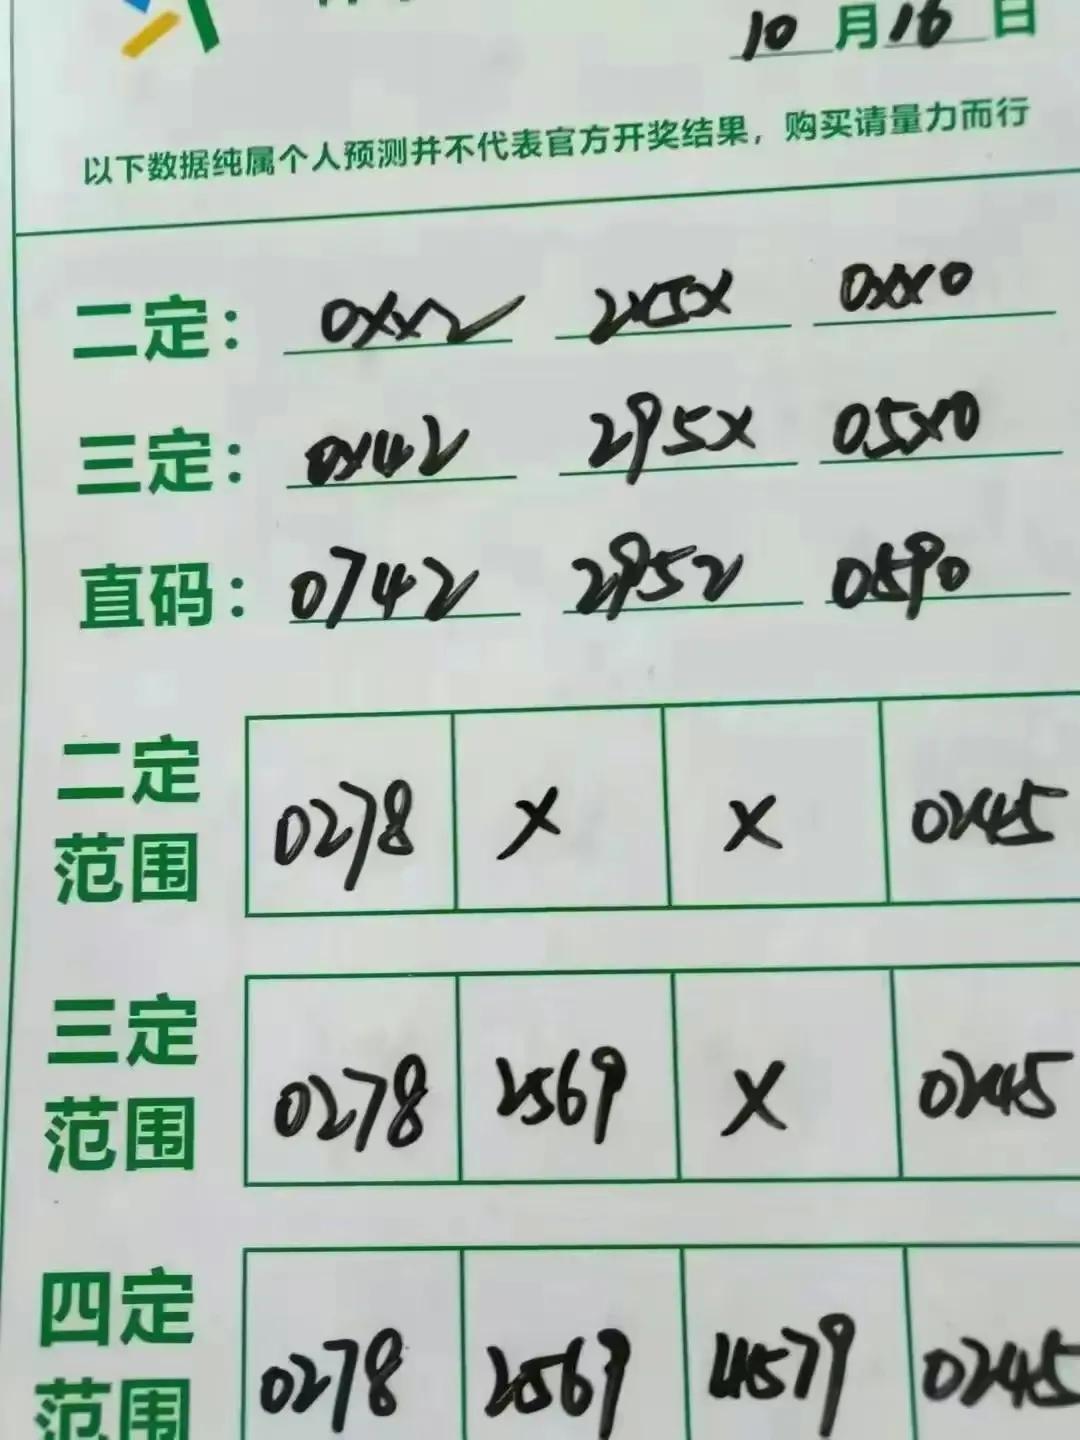 10月16日
以下数据纯属个人预测并不代表官方开奖结果，购买请量力而行
二定： 0xx2 2x5x 0xx0
三定： 0x42 295x 05x0
直码： 0742 2952 0590
二定范围 0278 x x 0245
三定范围 0278 2569 x 0245
四定范围 0278 2569 4579 0245